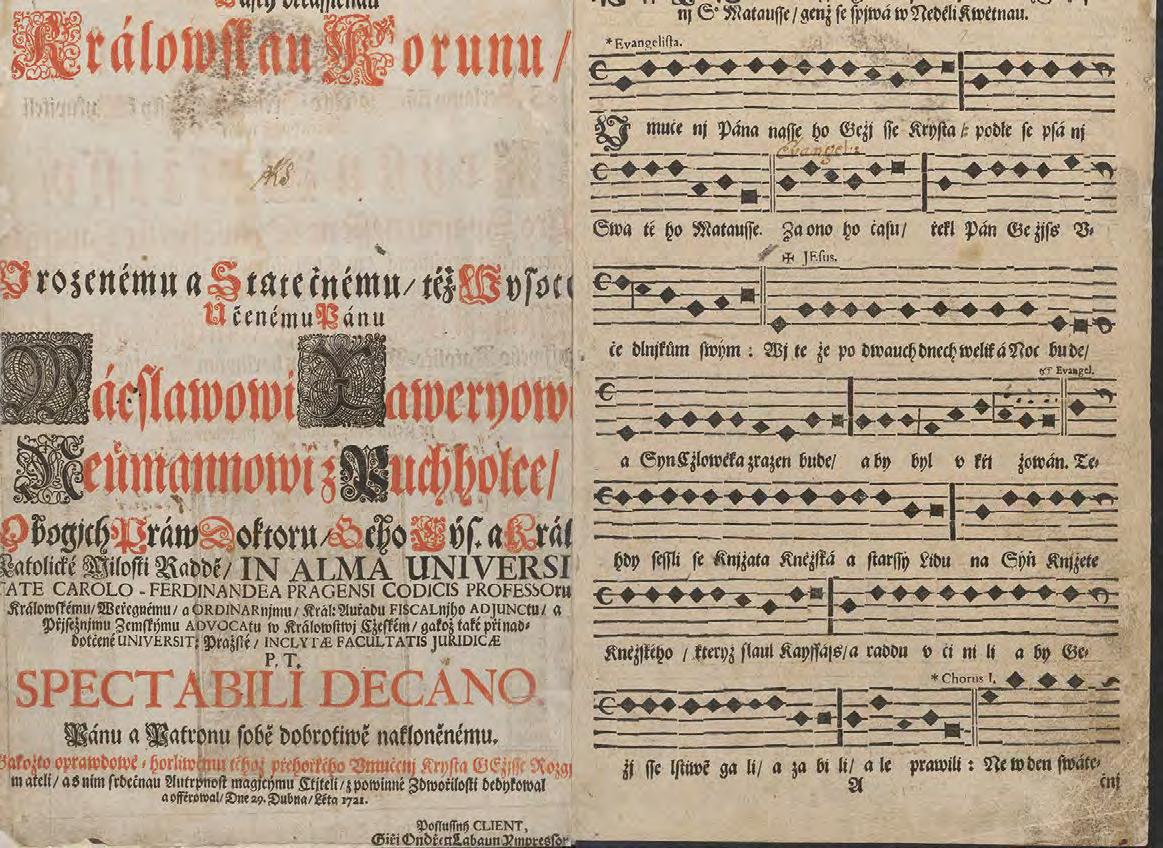 Králowskau Korunu/
Urozenému a Statečnému/ též Wysoce
Učenému Pánu
Wácslawowi Xaweryowi
Neümannowi z Puchholce/
Obogjch Práw Doktoru/ Geho Cýs. a Král
Katolické Milosti Raddě/ IN ALMA UNIVERSI
TATE CAROLO - FERDINANDEA PRAGENSI CODICIS PROFESSOru
Králowskému/ Weřegnému/ a ORDINARnjmu/ Král: Auřadu FISCALnjho ADJUNCtu/ a
Přjsežnjmu Zemskýmu ADVOCAtu w Králowstwj Cžeském/ gakož také při nad-
dotčené UNIVERSIT: Pražské/ INCLYTÆ FACULTATIS JURIDICÆ
P. T.
SPECTABILI DECANO
Pánu a Patronu sobě dobrotiwě nakloněnému.
Gakožto oprawdowé - horliwému téhož přehořkého Vmučenj Krysta GEžisse Rozgj
mateli/ a s njm srdečnau Autrpnost magjcýmu Ctiteli/ z powinné Zdwořilosti dedykowal
a offěrowal/ Dne 29. Dubna/ Léta 1721.
Poslussný CLIENT,
Giřj Ondřeg Labaun Ympressor
nj S° Matausse/ genž se spjwá w Neděli Kwětnau.
* Evangelista.
Vmuče nj Pána nasse ho Gežj sse Krysta/ podle se psá nj
Evangeli
Swa té ho Matausse. Za ono ho času/ řekl Pán Ge žjss V-
✠ JEsus.
če dlnjkům swým : Wj te že po dwauch dnech welik á Noc bude/
Evangel.
a Syn Cžlowěka zrazen bude/ a by byl v kři žowán. Te-
hdy sessli se Knjžata Kněžská a starssj Lidu na Syň Knjžete
Kněžského / kterýž slaul Kayffáss/ a raddu v či ni li a by Ge-
* Chorus I.
žj sse lstiwě ga li/ a za bi li/ a le prawili : Ne w den swáte-
A
čnj